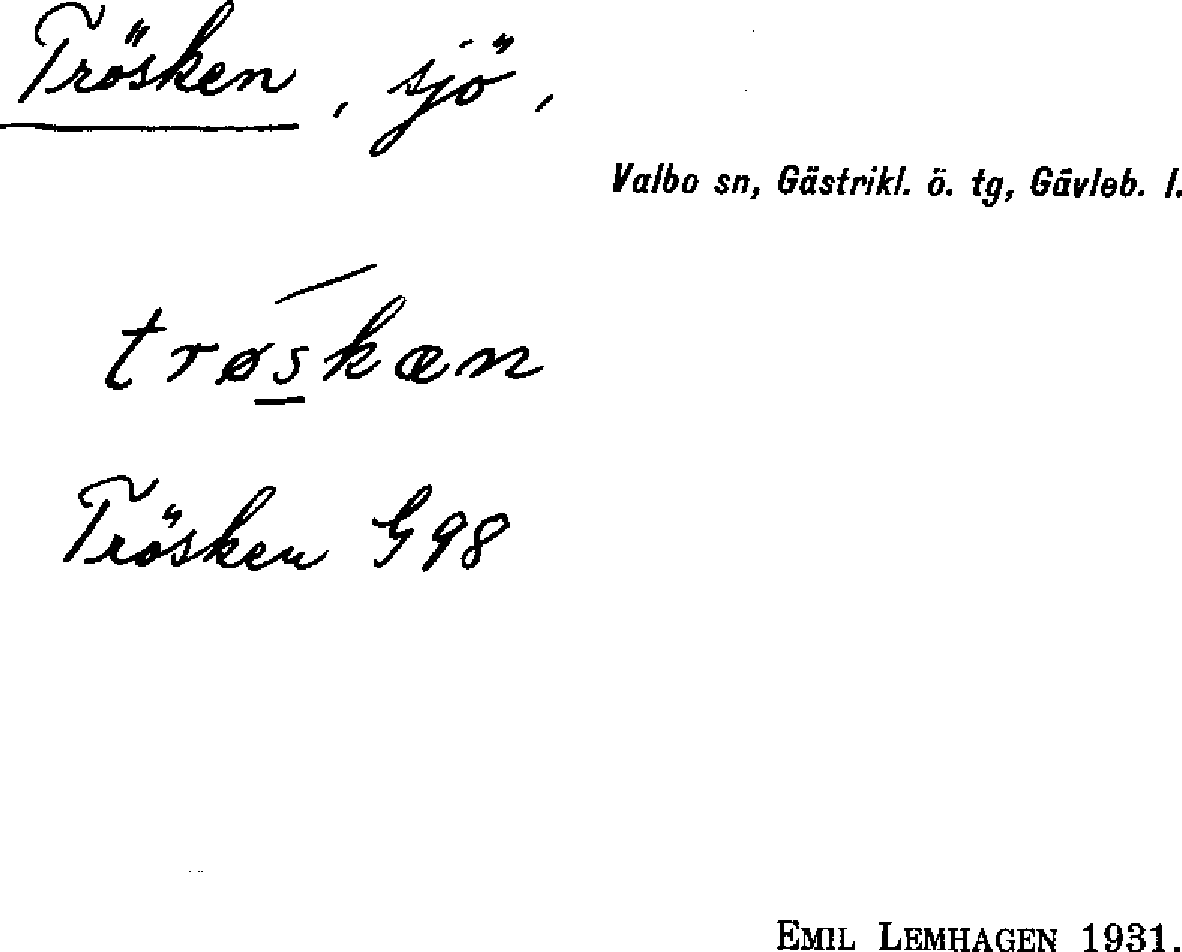 Trösken, sjö,
Valbo sn, Gästrikl. ö. tg, Gävleb. l.
trøskæn
Trösken G98
EMIL LEMHAGEN 1931.